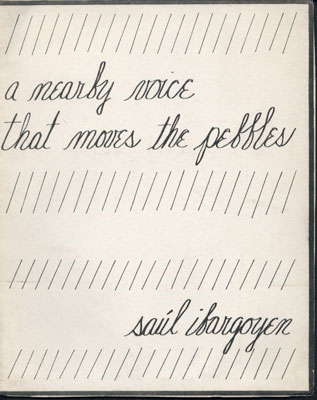 a nearby voice
that moves the pebbles
saúl ibargoyen